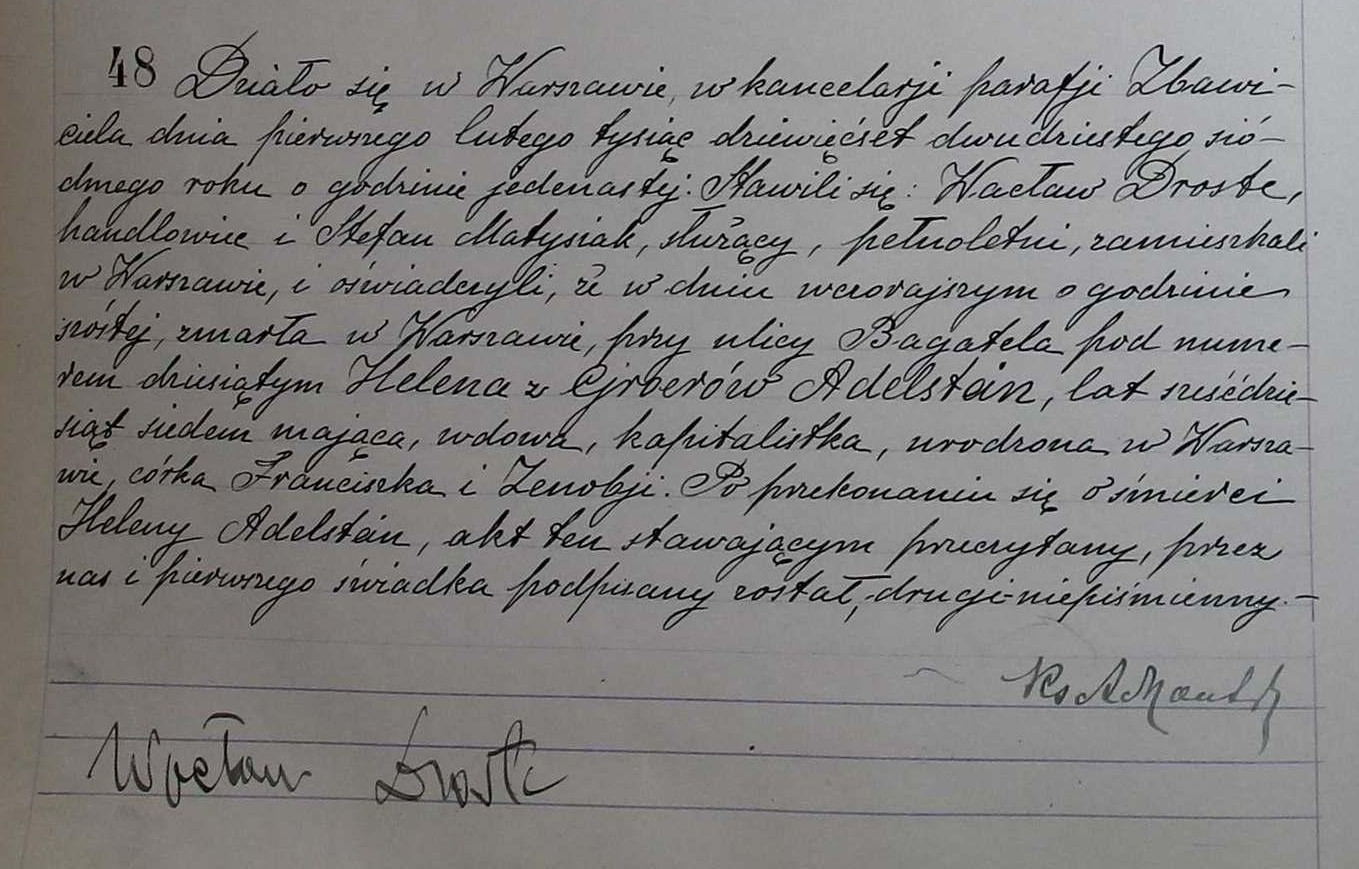 48 Działo się w Warszawie, w kancelarji parafji Zbawi-
ciela dnia pierwszego lutego tysiąc dziewięćset dwudziestego siό-
dmego roku o godzinie jedenastej. Stawili się: Wacław Droste,
handlowiec i Stefan Matysiak, służący, pełnoletni, zamieszkali
w Warszawie, i oświadczyli, że w dniu wczorajszym o godzinie
szóstej, zmarła w Warszawie, przy ulicy Bagatela pod nume-
rem dziesiątym Helena z Groerów Adelstán, lat sześćdzie-
siąt siedem mająca, wdowa, kapitalistka, urodzona w Warsza-
wie, córka Franciszka i Zenobji. Po przekonaniu się o śmierci
Heleny Adelstán, akt ten stawającym przeczytany, przez
nas i pierwszego świadka podpisany został, drugi niepiśmienny.-
Ks A
Wacław Droste